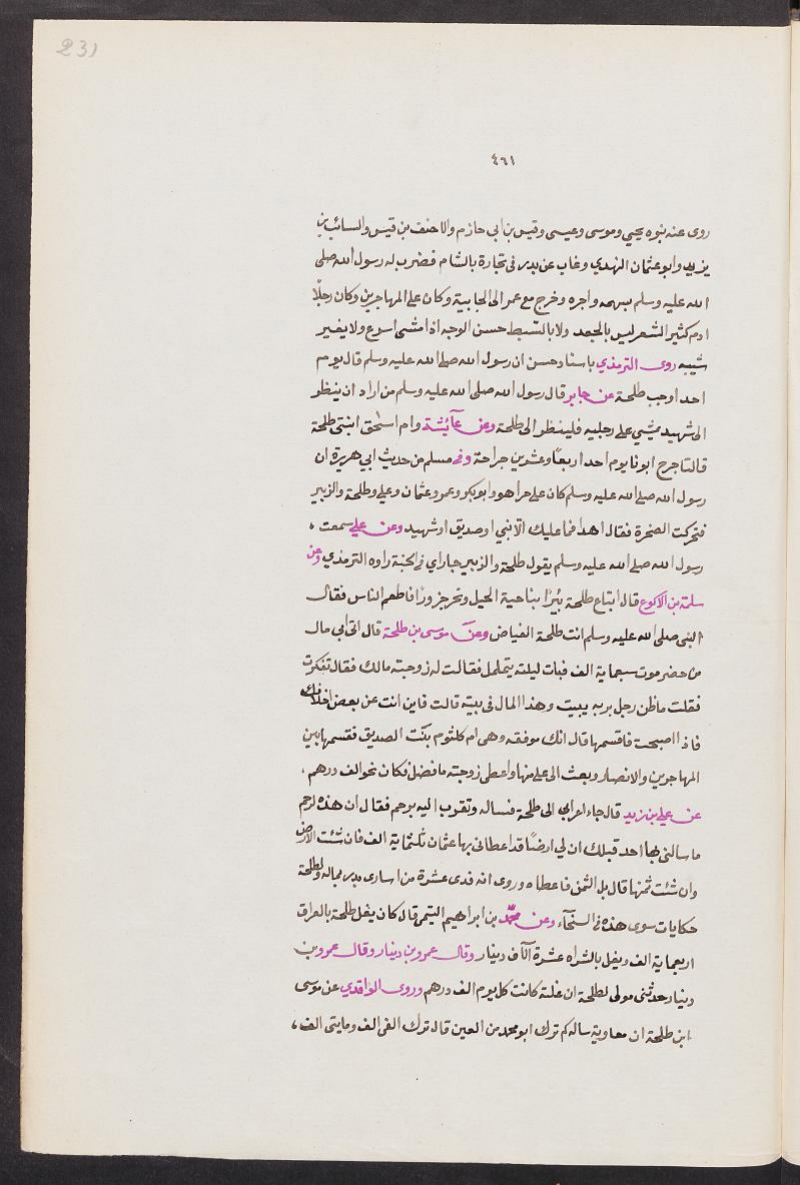 231
٤٦١
روى عنه بنوه يحيي وموسى وعيسى وقيس بن ابي حازم والاحنف بن قيس والسائب بن
يزيد وابو عثمان النهدي وغاب عن بدر فى تجارة بالشام فضرب له رسول الله صلى
الله عليه وسلم بسهمه واجره وخرج مع عمر الى الجابية وكان على المهاجرين وكان رجلًا
ادم كثير الشعر ليس بالجعد ولا بالسبط حسن الوجه اذا مشى اسرع ولا يغير
شيبه روى الترمذي باسناد حسن ان رسول الله صلى الله عليه وسلم قال يوم
احد اوجب طلحة عن جابر قال رسول الله صلى الله عليه وسلم من اراد ان ينظر
الى شهيد يمشي على رجليه فلينظر الى طلحة وعن عآئشة وام اسحق ابنتى طلحة
قالتا جرح ابونا يوم احد اربعًا وعشرين جراحة وفى مسلم من حديث ابي هريرة ان
رسول الله صلى الله عليه وسلم كان على حرا هو وابو بكر وعمر وعثمان وعلي وطلحة والزبير
فتحركت الصخرة فقال اهدا فما عليك الّا نبي او صديق او شهيد وعن علي سمعت
رسول الله صلى الله عليه وسلم يقول طلحة والزبير جاراي فى الجنة رواه الترمذي وعن
سلمة بن الاكوع قال ابتاع طلحة بئرًا بناحية الجبل ونحر جزورًا فاطعم الناس فقال
النبى صلى الله عليه وسلم انت طلحة الفياض وعن موسى بن طلحة قال اتى ابي مال
من حضر موت سبعماية الف فبات ليلته يتململ فقالت له زوجته مالك فقال تفكرت
فقلت ما ظن رجل بربه يبيت وهذا المال فى بيته قالت فاين انت عن بعض اخلائك
فاذا اصبحت فاقسمها قال انك موفقه وهى ام كلثوم بنت الصديق فقسمها بين
المهاجرين والانصار وبعث الى على منها واعطى زوجته ما فضل فكان نحو الف درهم
عن علي بن زيد قال جاء اعرابي الى طلحة فساله وتقرب اليه برحم فقال ان هذه لرحم
ما سالنى بها احد قبلك ان لي ارضًا قد اعطانى بها عثمان ثلثماية الف فان شئت الارض
وان شئت ثمنها قال بل الثمن فاعطاه وروى انه فدى عشرة من اسارى بدر بماله ولطلحة
حكايات سوى هذه فى السخآء وعن محمّد بن ابراهيم التيمى قال كان يغل طلحة بالعراق
اربعماية الف ويغل بالشراه عشرة الآف دينار وقال عمرو بن دينار وقال عمرو بن
دينار حدثنى مولى لطلحة ان غلته كانت كل يوم الف درهم وروى الواقدي عن موسى
ابن طلحة ان معاوية ساله كم ترك ابو محمد من العين قال ترك الفى الف ومايتى الف